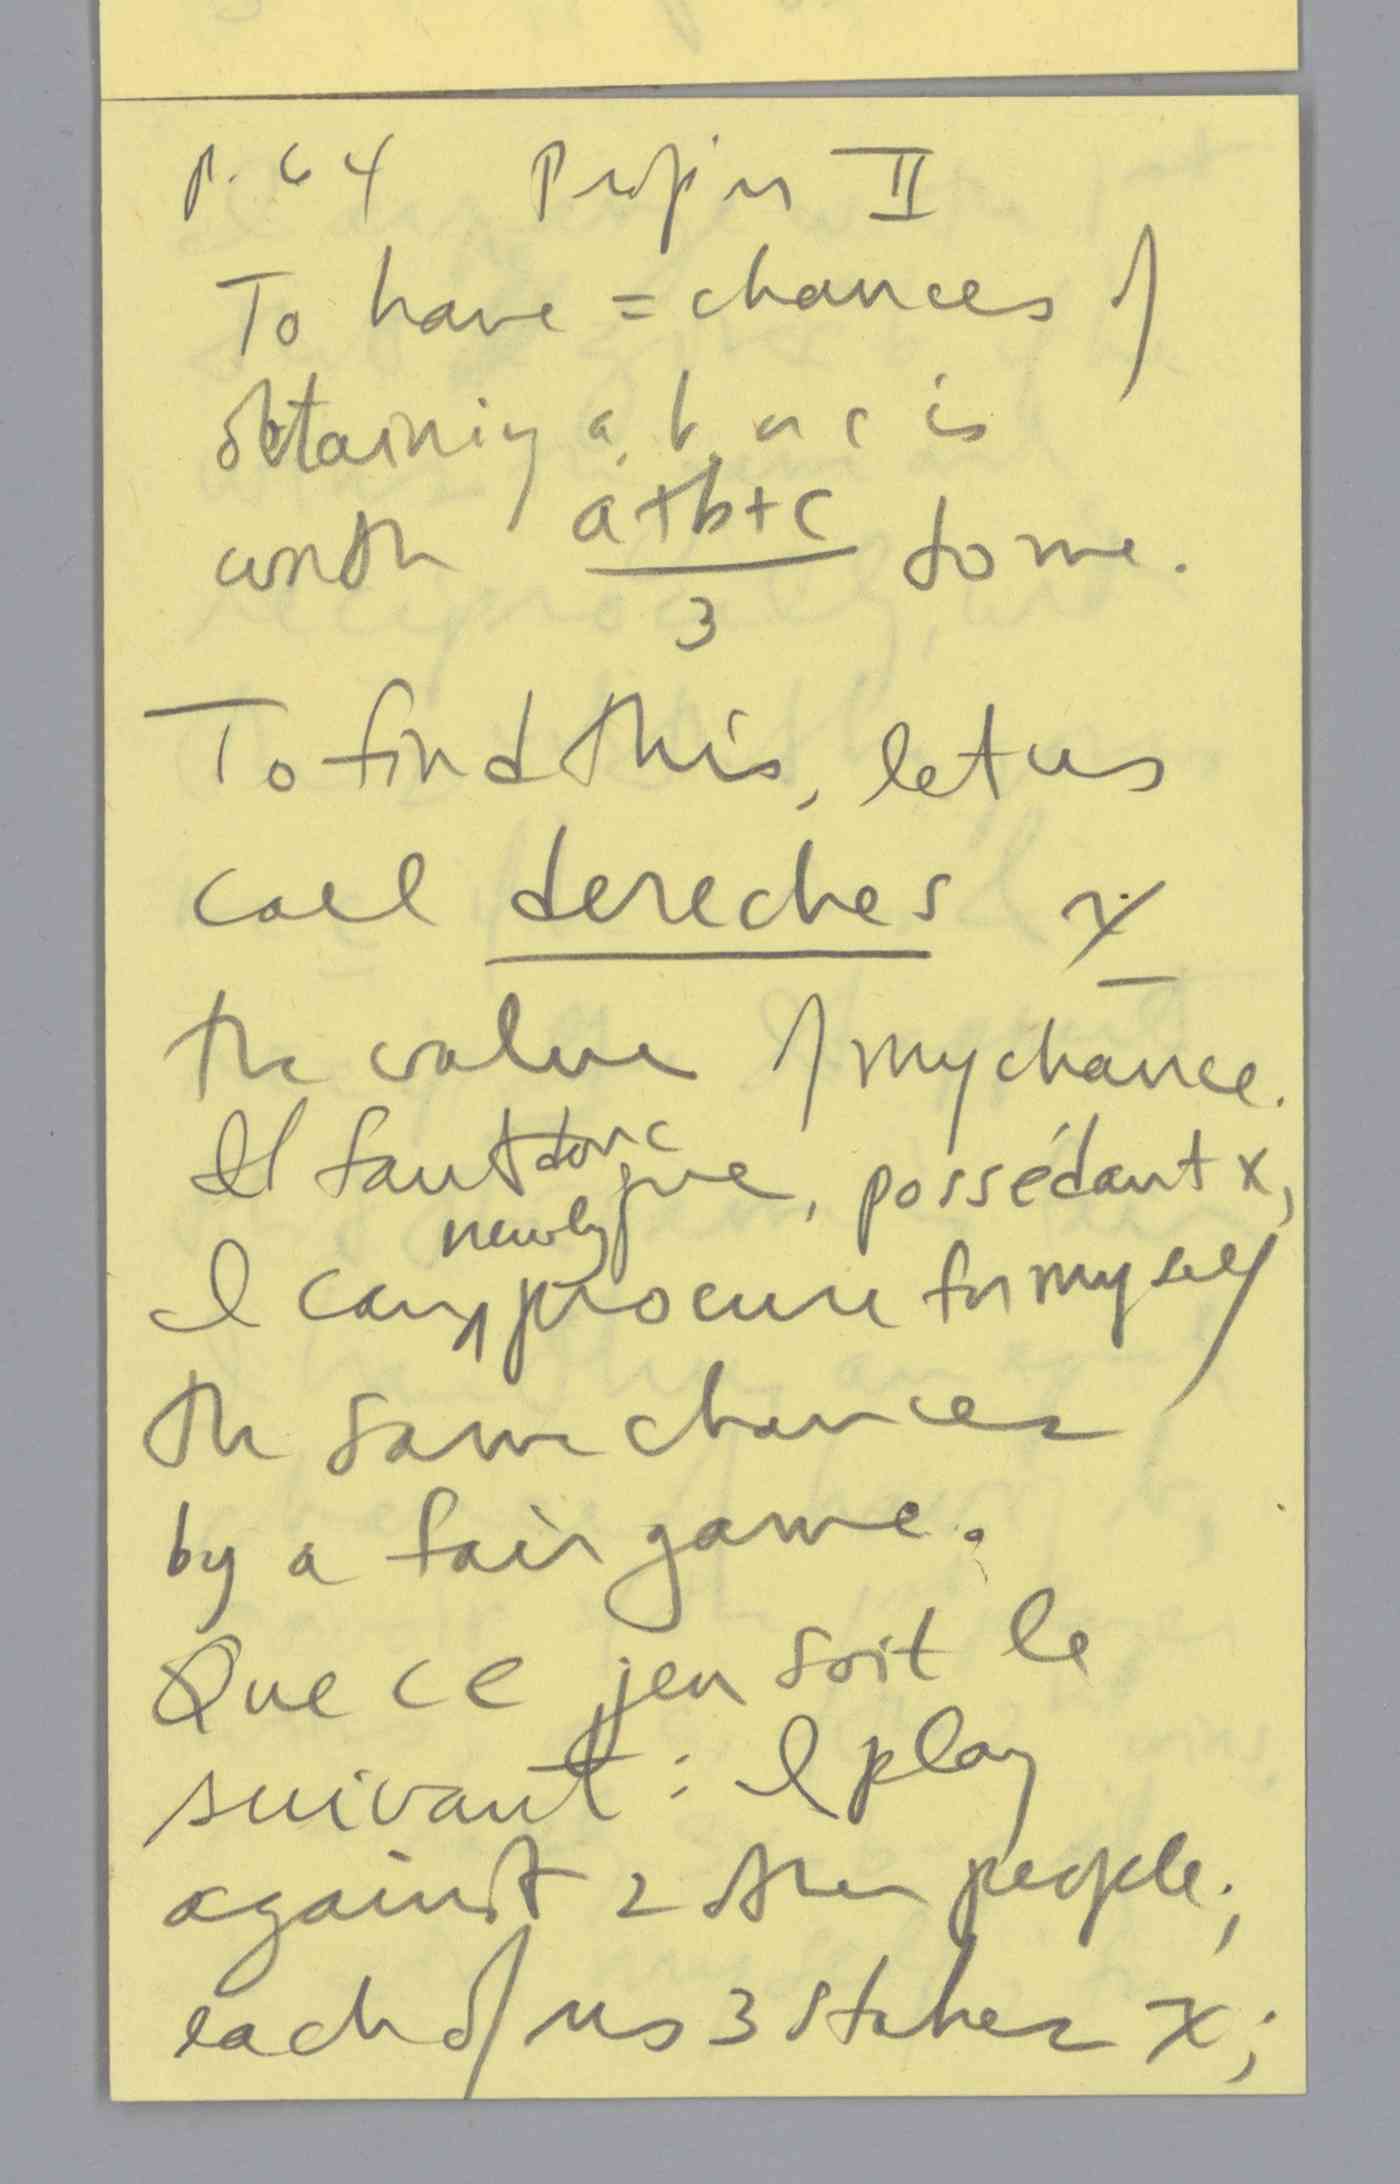 p. 64 Prop'n II
To have = chances of
obtaining a, b, or c is
worth a+b+c to me.
3
To find this, let us
call dereches x
the value of my chance.
Il faut donc que, possédant x,
newly
I can procure for myself
the same chances
by a fair game.
Que ce jeu soit le
suivant : I play
against 2 other people;
each of us 3 stakes x;